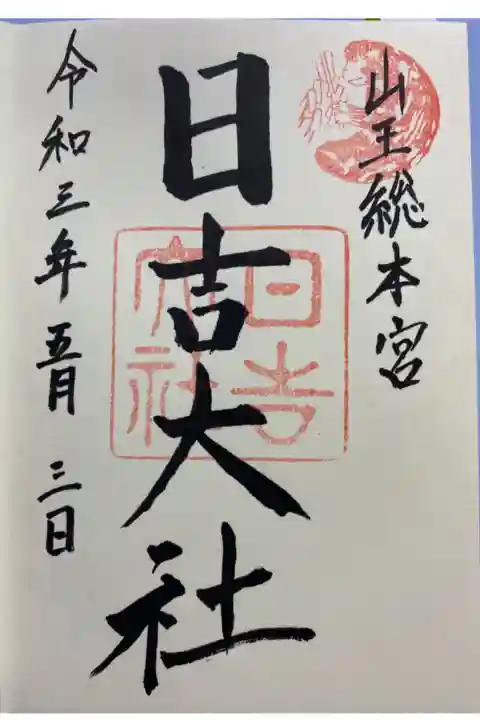 山王総本宮
日吉大社
日吉大社
令和三年五月三日